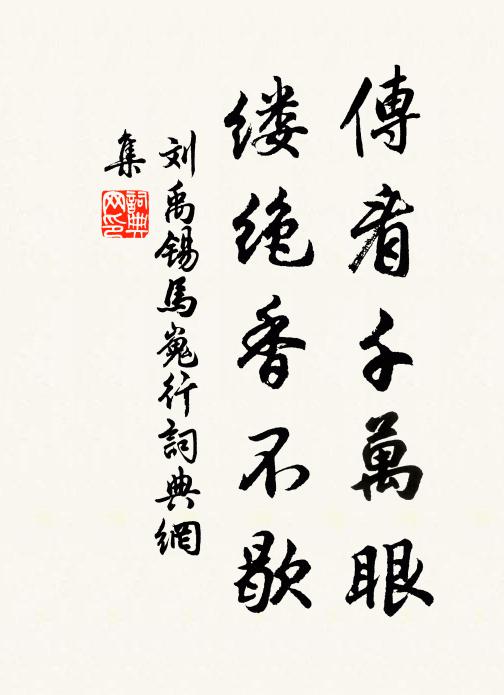 傳看千萬眼
缕绝香不歇
刘禹锡馬嵬行詞典網
集
詞典網印